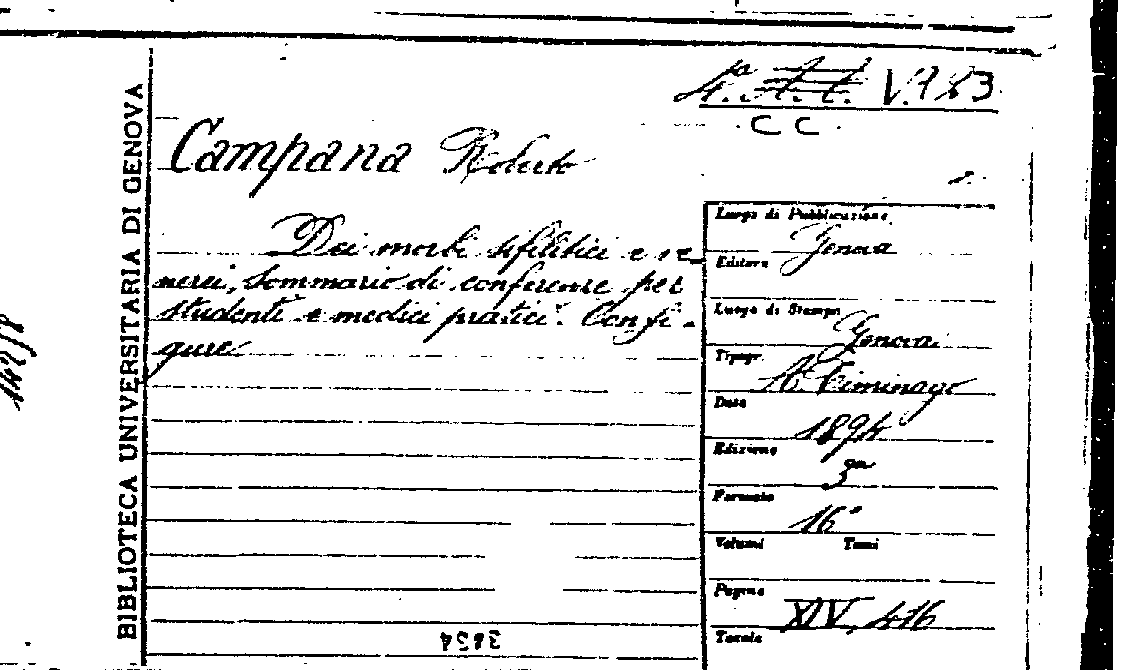 4.ª A. t. V. 983
. C C .
Campana Roberto
Dei morbi sifilitici e ve-
nerei, Sommario di conferenze per
studenti e medici pratici. Con fi-
gure
BIBLIOTECA UNIVERSITARIA DI GENOVA
Luogo di Pubblicazione
Genova
Editore
Luogo di Stampa
Genova
Tipogr.
A. Ciminago
Data
1894
Edizione
3ª
Formato
16°
Volumi Tomi
Pagine
XIV, 416
Tavole